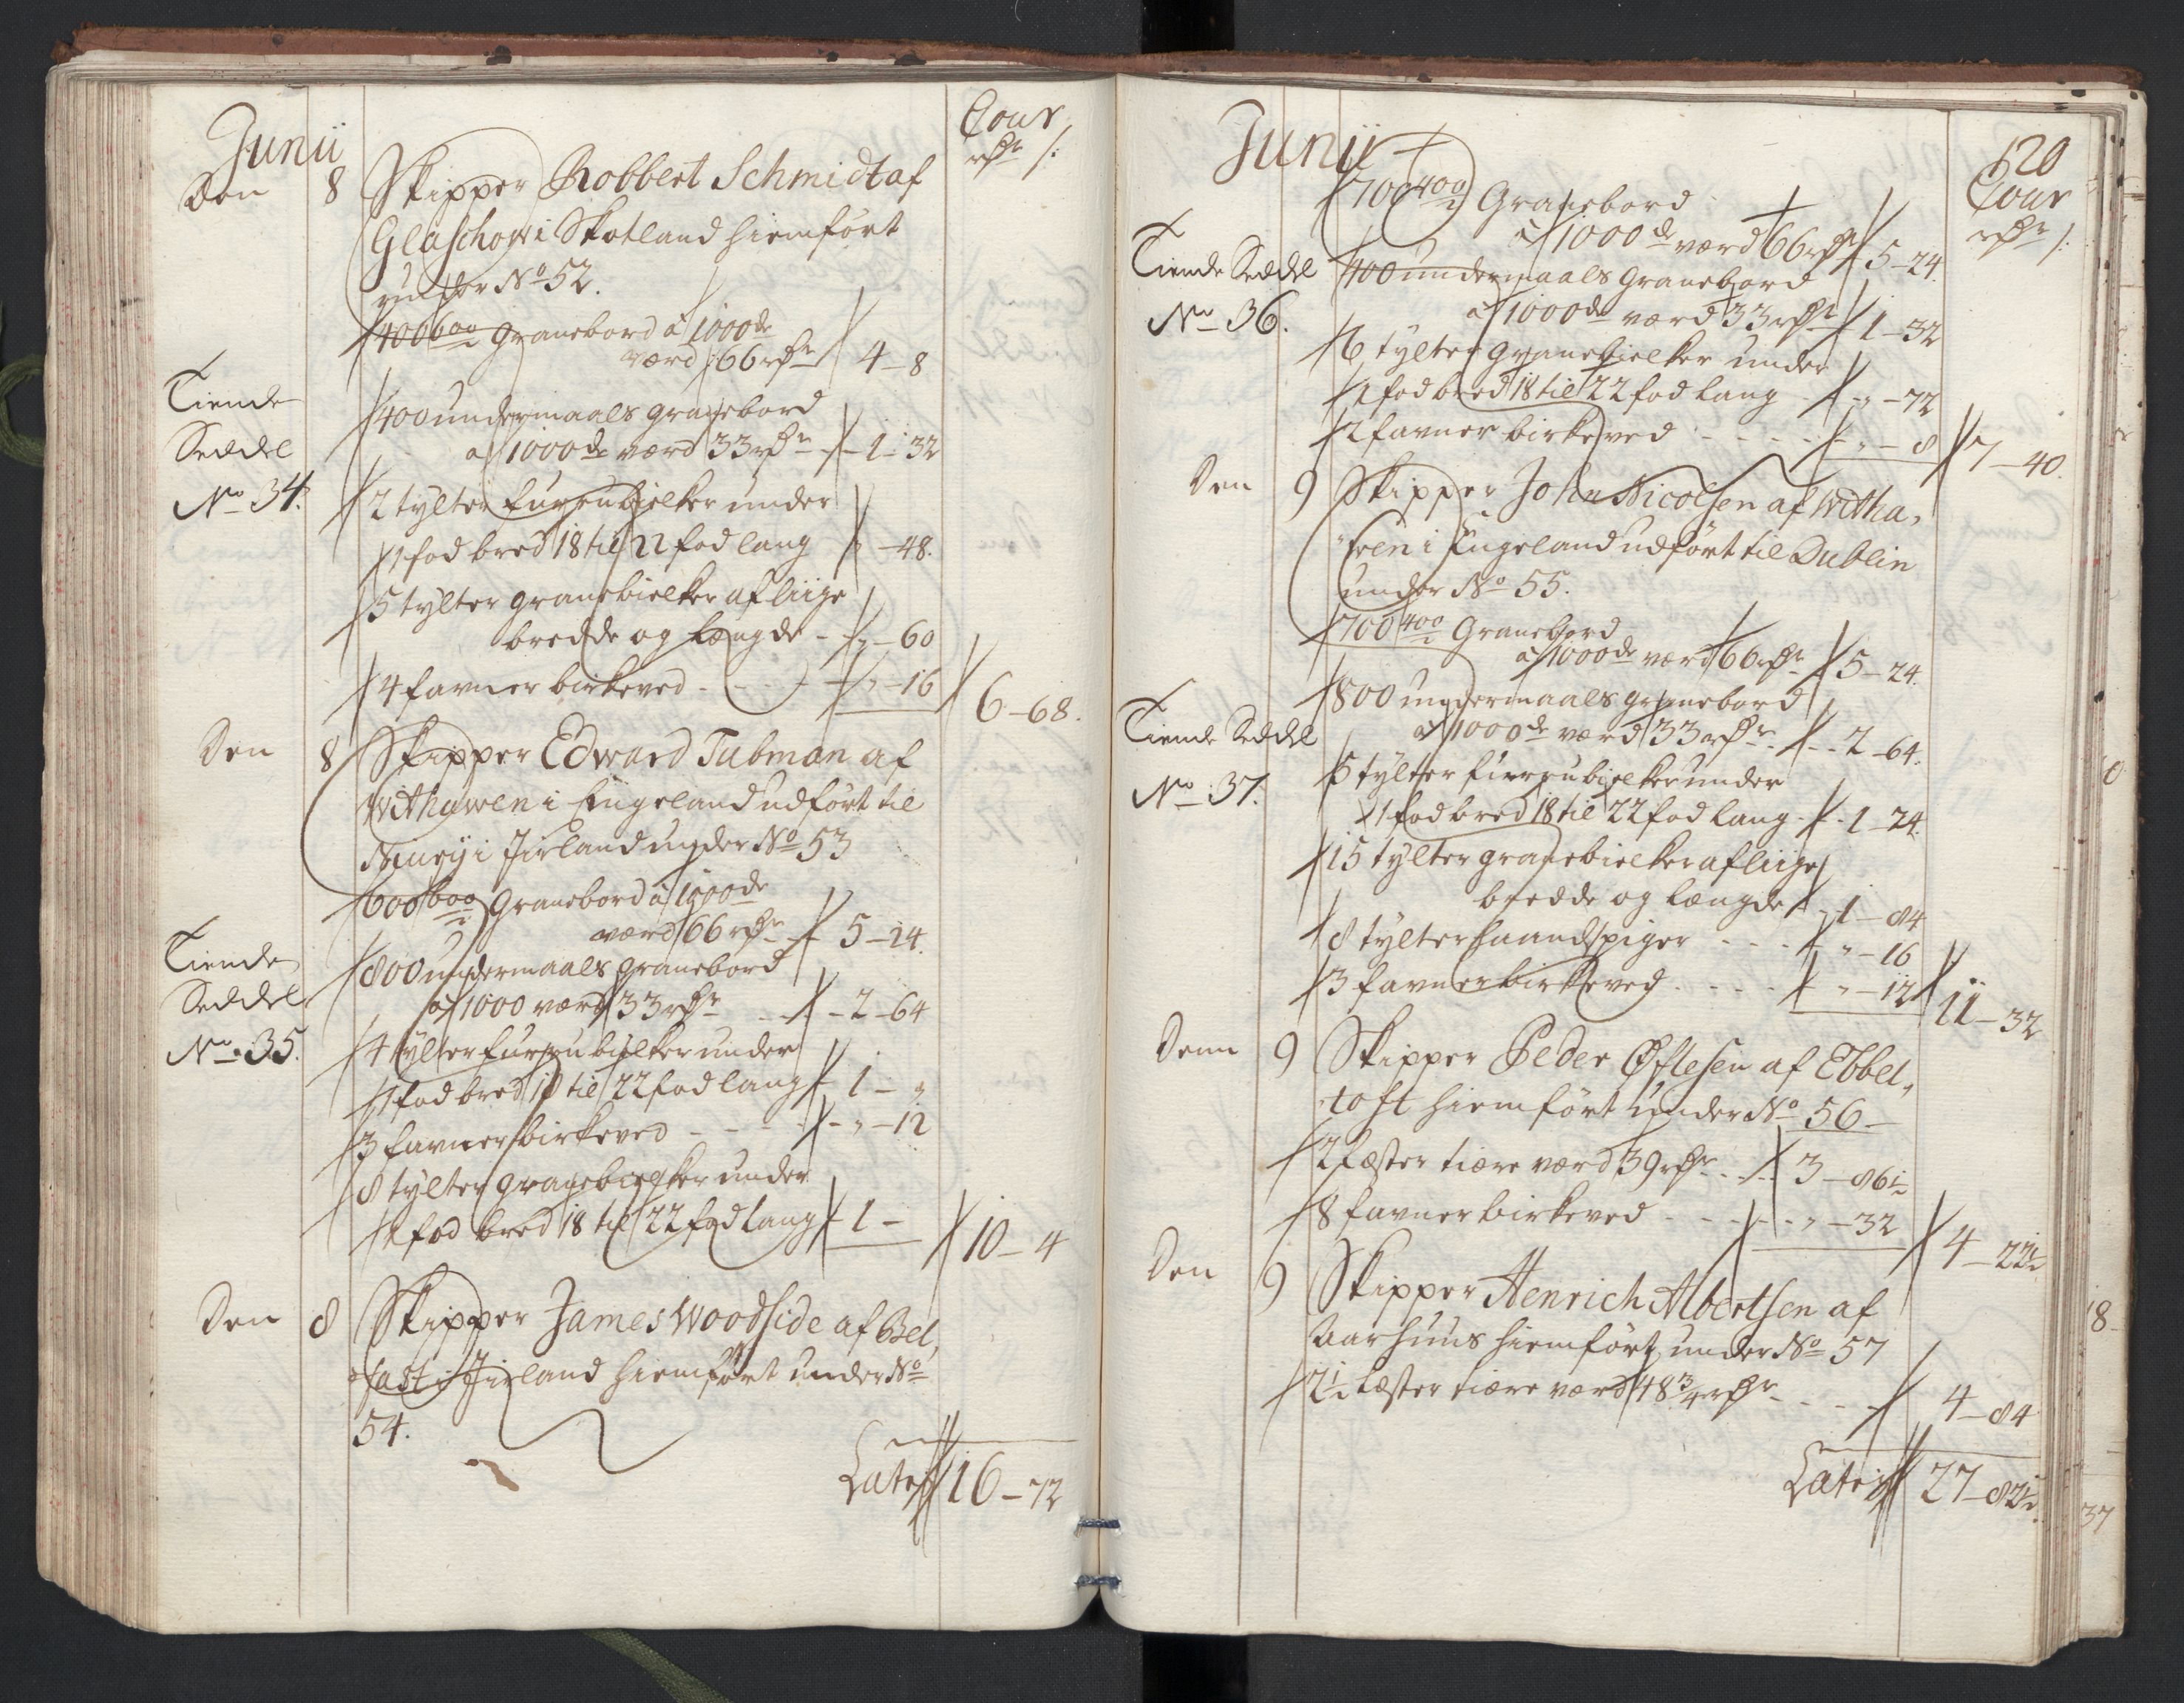 Junii
Cour
rdr ß:
Den 8 Skipper Robbert Schmidt af
Glaschow i Skotland hiemført
under No 52.
Tiende
Seddel
No 34.
400 600 Granebord à 1000de
værd 66 rdr 4-8
400 undermaals granebord
a 1000de værd 33 rdr 1-32
2 tylter furrubielker under
1 fod bred 18 til 22 fod lang " -48.
5 tylter granebielker af liige
bredde og Længde - " -60
4 favner birkeved - - - " -16 6-68.
Den 8 Skipper Edward Tubman af
Withawen i Engeland udført til
Neury i Jirland under No 53
Tiende
Seddel
No 35.
600 600 Granebord à 1000de
værd 66 rdr 5-24.
800 undermaals granebord
a 1000 værd 33 rdr - 2-64
4 tylter furrubielker under
1 fod bred 18 til 22 fod lang 1 - "
3 favner birkeved - - - " -12
8 tylter granebielker under
1 fod bred 18 til 22 fod lang 1 - 10-4
Den 8 Skipper James Woodside af Bel,
fast i Jirland hiemført under No
54.
Lateris 16-72
Junii
120
Cour
rdr ß:
Tiende Seddel
No 36.
700 400 Granebord
à 1000de værd 66 rdr 5-24.
400 undermaals Granebord
a 1000de værd 33 rdr 1-32
6 tylter granebielker under
1 fod bred 18 til 22 fod lang " -72
2 favner birkeved - - - - " -8 7-40.
Den 9 Skipper John Nicolsen af Witha,
ven i Engeland udført til Dublin
under No 55.
Tiende Seddel
No 37.
700 400 Granebord
à 1000de værd 66 rdr 5-24.
800 undermaals granebord
a 1000de værd 33 rdr - 2-64.
5 tylter furrubielker under
1 fod bred 18 til 22 fod lang - 1-24.
15 tylter granebielker af liige
bredde og længde 1-84
8 tylter haandspiger - - - " -16
3 favner birkeved - - - - " -12 11-32
Denn 9 Skipper Peder Øflesen af Ebbel,
toft hiemført under No 56
2 Læster tiære værd 39 rdr - - 3-86½
8 favner birkeved - - - - " -32 4-22½
Den 9 Skipper Henrich Albertsen af
Aarhuus hiemført under No 57
2½ Læster tiære værd 48¾ rdr - - - 4-84
Lateris 27-82½